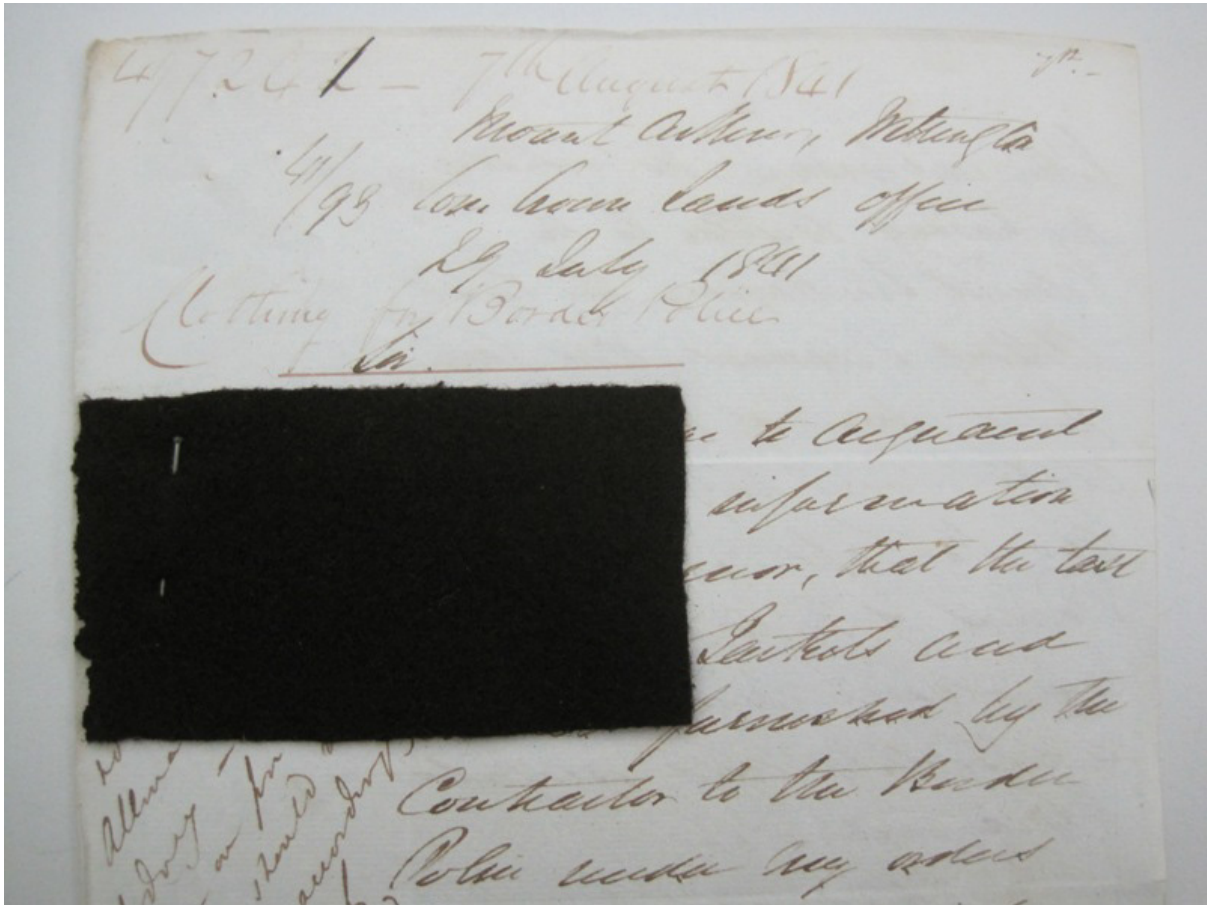 41/7242 - 7th August 1841
Mount Arthur, Wellington
41/93 Com. Crown Lands Office
29 July 1841
Clothing for Border Police
Sir.
to acquaint
information
that the last
Jackets and
furnished by the
Contractor to the Border
Police under my orders
should